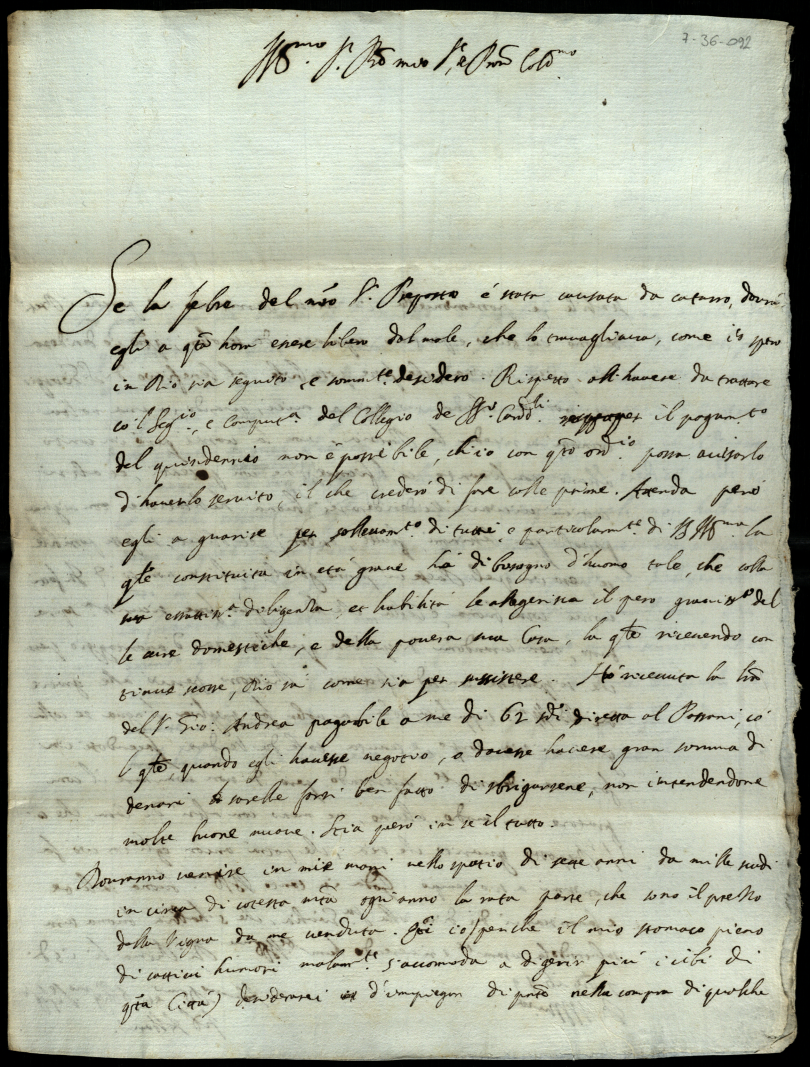 7-36-092
Ill.mo S.r P.ron mio S.r, e P.ron Col.mo
Se la febre del n͞ro S.r Preposto è stata causata da catarro, dovrà
egli a q͞ta hora essere libero dal male, che lo travagliava, come io spero
in Dio sia seguito, e somm.te desidero. Rispetto all'havere da trattare
co'l Seg.rio, e Comput.a del Collegio de SS.ri Card.li il pagam.to
del quindennio non è possibile, ch'io con q͞to ord.io possa avisarlo
d'haverlo servito, il che crederò di fare colle prime. Attenda però
egli a guarire per sollevam.to di tutti, e particolarm.te di VS Ill.ma la
q͞le constituita in età grave hà di bisogno d'huomo tale, che colla
sua esattiss.a diligenza, et habilità le allegerisca il peso graviss.o del
le cure domestiche, e della povera sua Casa, la q͞le ricevendo con
tinue scosse, Dio sà come sia per sussistere. Hò ricevuta la l͞ra
del S.r Gio: Andrea pagabile a me di 62 s.di diretta al Passani, co'
l q͞le, quando egli havesse negotio, o dovesse havere gran somma di
denari sarebbe forsi ben fatto di sbrigarsene, non intendendone
molte buone nuove. Stia però in se il tutto.
Dovranno venire in mie mani nello spatio di sette anni da mille scudi
in circa di cotesta m͞ta ogni anno la rata parte, che sono il prezzo
della Vigna da me venduta. Q͞di io (perche il mio stomaco pieno
di cattivi humori malam.te s'accomoda a digerir più i cibi di
q͞ta Città) desiderarei d'impiegar di p͞nte nella compra di qualche